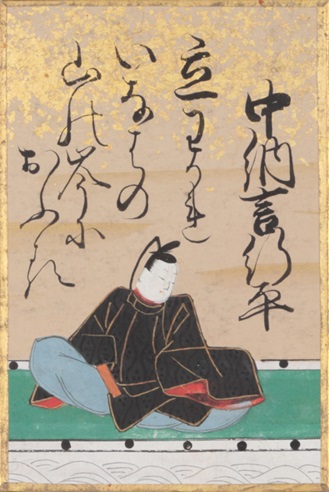 中納言行平
立わかれ
いなはの
山の峯に
おふる